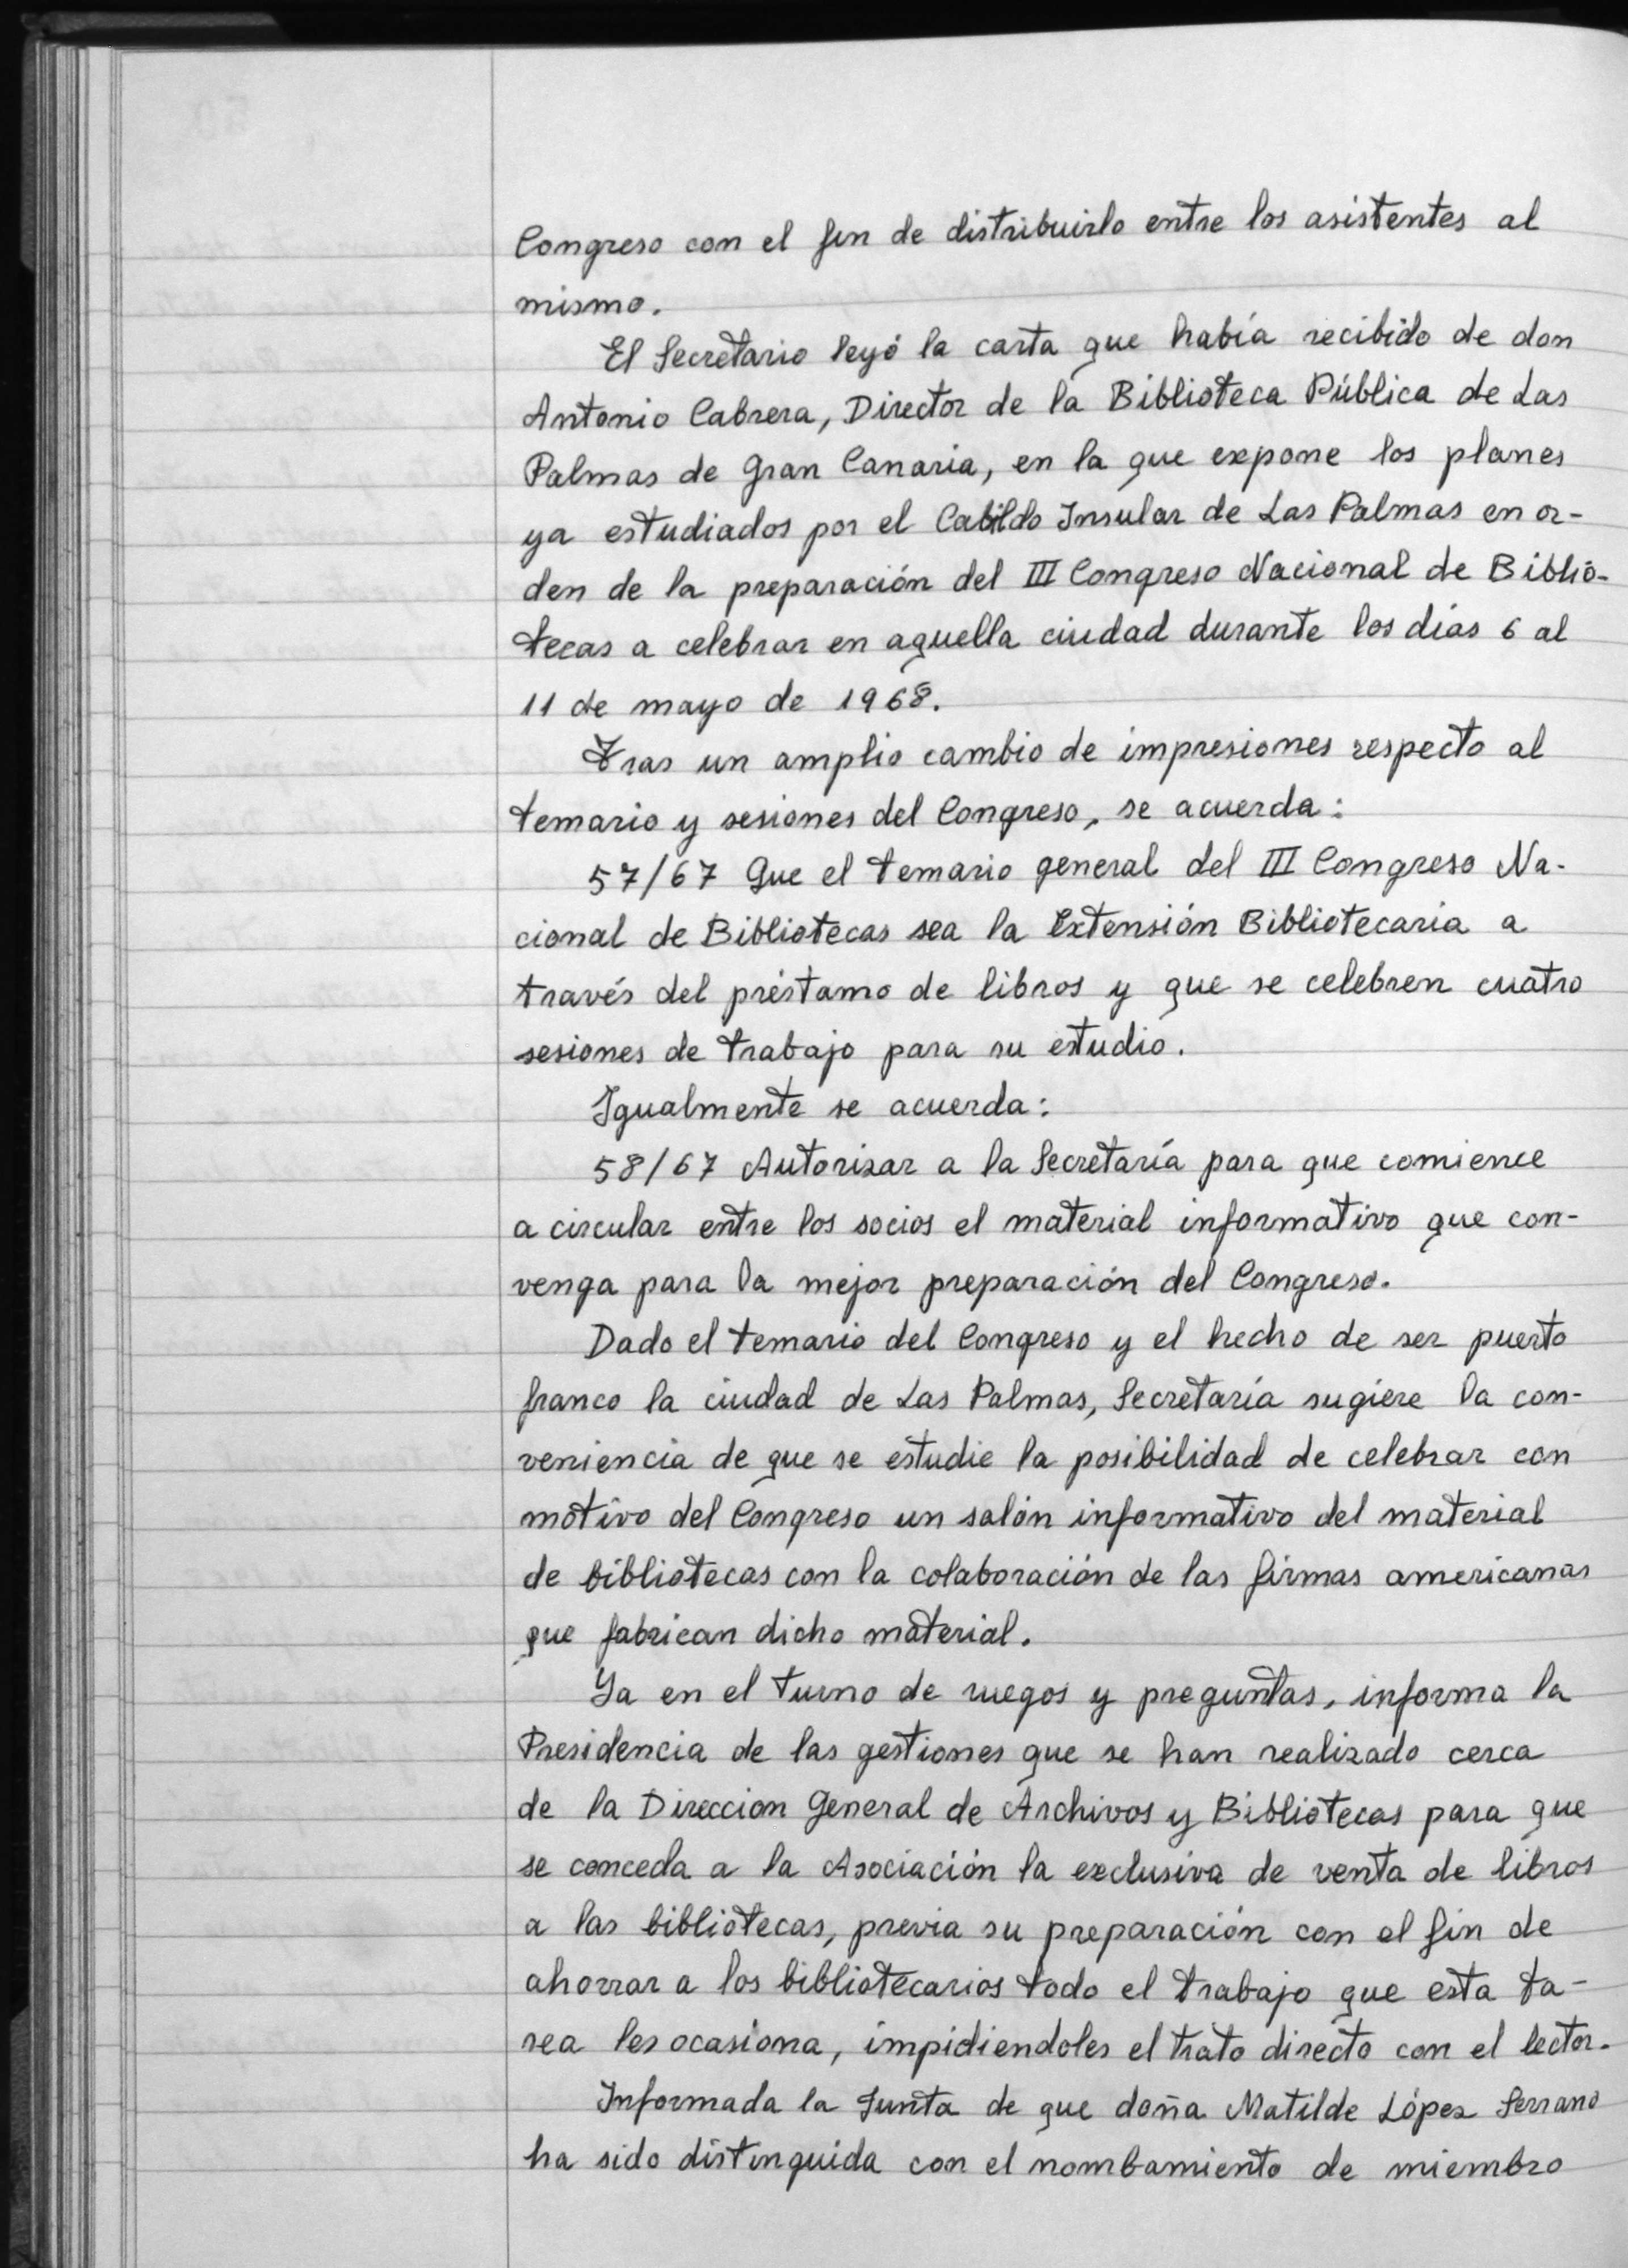 Congreso con el fin de distribuirlo entre los asistentes al
mismo.
El Secretario leyó la carta que había recibido de don
Antonio Cabrera, Director de la Biblioteca Pública de Las
Palmas de Gran Canaria, en la que expone los planes
ya estudiados por el Cabildo Insular de Las Palmas en or-
den de la preparación del III Congreso Nacional de Biblio-
tecas a celebrar en aquella ciudad durante los días 6 al
11 de mayo de 1968.
Tras un amplio cambio de impresiones respecto al
temario y sesiones del Congreso, se acuerda:
57/67 Que el temario general del III Congreso Na-
cional de Bibliotecas sea la Extensión Bibliotecaria a
través del préstamo de libros y que se celebren cuatro
sesiones de trabajo para su estudio.
Igualmente se acuerda:
58/67 Autorizar a la Secretaría para que comience
a circular entre los socios el material informativo que con-
venga para la mejor preparación del Congreso.
Dado el temario del Congreso y el hecho de ser puerto
franco la ciudad de Las Palmas, Secretaría sugiere la con-
veniencia de que se estudie la posibilidad de celebrar con
motivo del Congreso un salón informativo del material
de bibliotecas con la colaboración de las firmas americanas
que fabrican dicho material.
Ya en el turno de ruegos y preguntas, informa la
Presidencia de las gestiones que se han realizado cerca
de la Direccion General de Archivos y Bibliotecas para que
se conceda a la Asociación la exclusiva de venta de libros
a las bibliotecas, previa su preparación con el fin de
ahorrar a los bibliotecarios todo el trabajo que esta ta-
rea les ocasiona, impidiendoles el trato directo con el lector.
Informada la Junta de que doña Matilde López Serrano
ha sido distinguida con el nombamiento de miembro